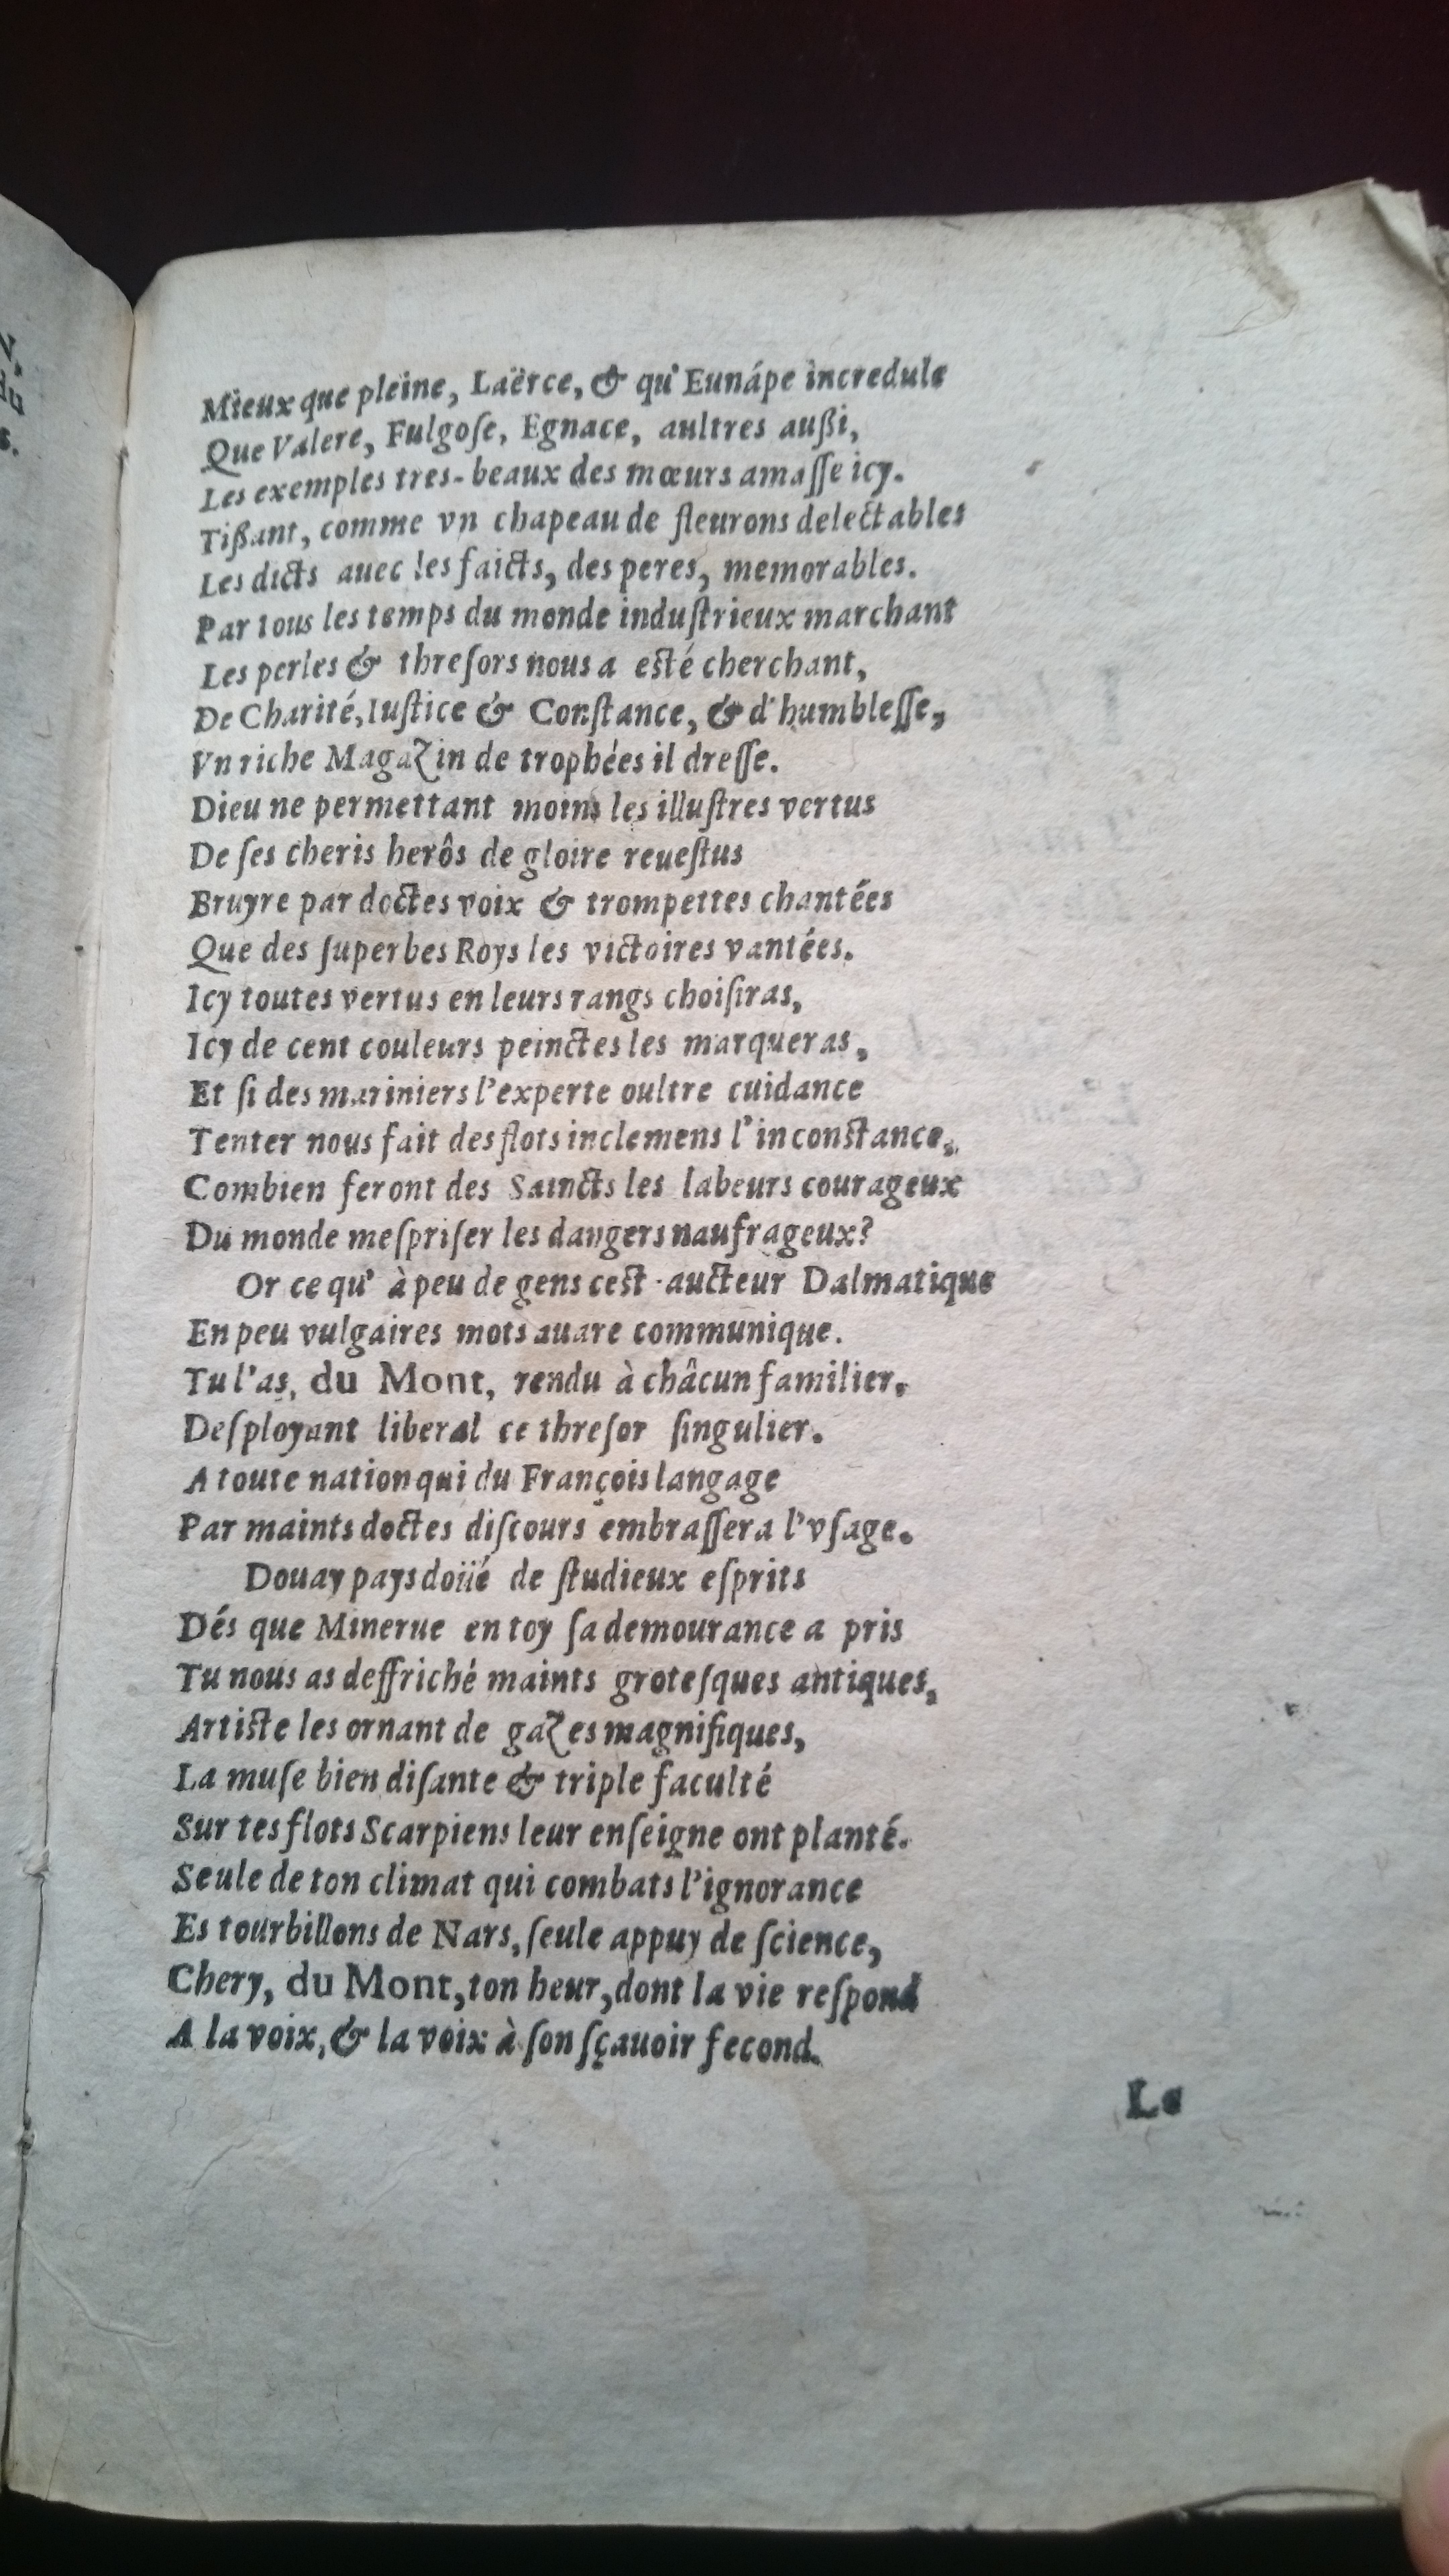 Mieux que pleine, Laërce, & qu' Eunápe incredule
Que Valere, Fulgoſe, Egnace, aultres außi,
Les exemples tres-beaux des mœurs amaſſe icy.
Tißant, comme vn chapeau de fleurons delectables
Les dicts auec les faicts, des peres, memorables.
Par tous les temps du monde induſtrieux marchant
Les perles & threſors nous a esté cherchant,
De Charité, Iuſtice & Conſtance, & d'humbleſſe,
Vn riche Magazin de trophées il dreſſe.
Dieu ne permettant moins les illuſtres vertus
De ſes cheris herôs de gloire reueſtus
Bruyre par doctes voix & trompettes chantées
Que des ſuperbes Roys les victoires vantées.
Icy toutes vertus en leurs rangs choiſiras,
Icy de cent couleurs peinctes les marqueras,
Et ſi des mariniers l'experte oultre cuidance
Tenter nous fait des flots inclemens l'inconstance,
Combien feront des Saincts les labeurs courageux
Du monde meſpriſer les dangers naufrageux?
Or ce qu' à peu de gens cest aucteur Dalmatique
En peu vulgaires mots auare communique.
Tu l'as, du Mont, rendu à châcun familier,
Deſployant liberal ce threſor ſingulier.
A toute nation qui du François langage
Par maints doctes diſcours embraſſera l'vſage.
Douay pays doüé de ſtudieux eſprits
Dés que Minerue en toy ſa demourance a pris
Tu nous as deffriché maints groteſques antiques,
Artiste les ornant de gazes magnifiques,
La muſe bien diſante & triple faculté
Sur tes flots Scarpiens leur enſeigne ont planté.
Seule de ton climat qui combats l'ignorance
Es tourbillons de Nars, ſeule appuy de ſcience,
Chery, du Mont, ton heur, dont la vie reſpond
A la voix, & la voix à ſon ſçauoir fecond.
Le